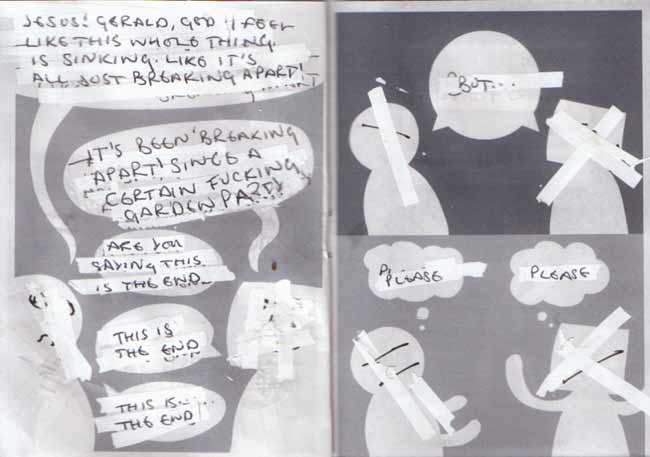 JESUS! GERALD, GOD I FEEL
LIKE THIS WHOLE THING
IS SINKING. LIKE IT'S
ALL JUST BREAKING APART!
IT'S BEEN 'BREAKING
APART' SINCE A
CERTAIN FUCKING
GARDEN PARTY
ARE YOU
SAYING THIS
IS THE END_
THIS IS
THE END
THIS IS......
THE END
BUT....
PLEASE
PLEASE